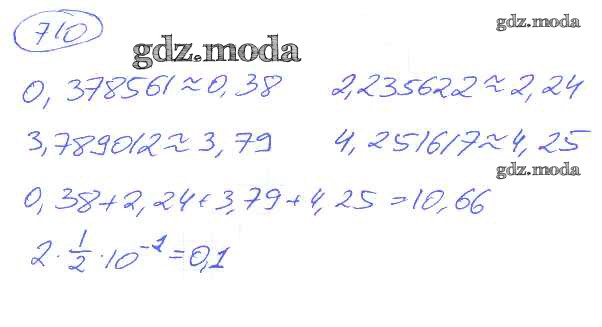 710
gdz.moda
gdz.moda
0,378561≈0,38 2,235622≈2,24
3,789012≈3,79 4,251617≈4,25
gdz.moda
0,38+2,24+3,79+4,25=10,66
2·1/2·10⁻¹=0,1